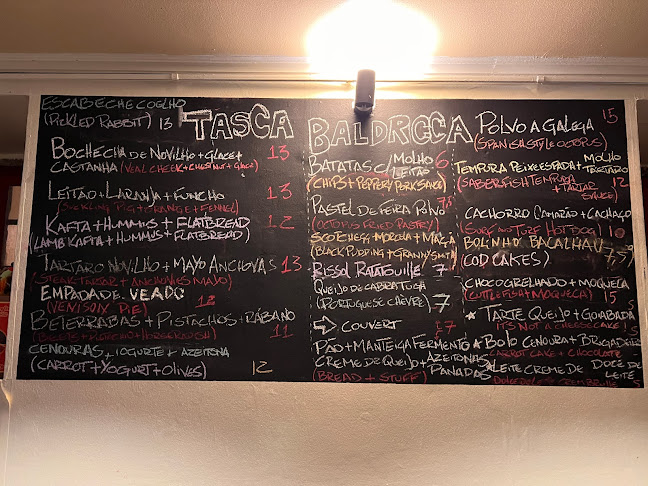 ESCABECHE COELHO
(PICKLED RABBIT) 13
TASCA BALDRACCA
BOCHECHA DE NOVILHO + GLACE + 13
CASTANHA (VEAL CHEEK + CHESTNUT + GLACE)
LEITÃO + LARANJA + FUNCHO 13
(SUCKLING PIG + ORANGE + FENNEL)
KAFTA + HUMMUS + FLATBREAD 12
(LAMB KAFTA + HUMMUS + FLATBREAD)
TARTARO NOVILHO + MAYO ANCHOVAS 13
(STEAK TARTAR + ANCHOVIES MAYO)
EMPADA DE VEADO
(VENISON PIE) 12
BETERRABAS + PISTACHOS + RÁBANO 11
CENOURAS + IOGURTE + AZEITONA
(CARROT + YOGURT + OLIVES) 12
BATATAS C/ MOLHO LEITÃO 6
(CHIPS + PEPPERY PORK SAUCE)
PASTEL DE FEIRA POLVO 7,5
(OCTOPUS FRIED PASTRY)
SCOTCH EGG, MORCELA + MAÇÃ
(BLACK PUDDING + GRANNY SMITH)
RISSOL RATATOUILLE 7
QUEIJO DE CABRA TOSTA
(PORTUGUESE CHÈVRE) 7
→ COUVERT 7
PÃO + MANTEIGA FERMENTO
CREME DE QUEIJO + AZEITONAS
PANADAS
(BREAD + STUFF)
POLVO A GALEGA 15
(SPANISH STYLE OCTOPUS)
TEMPURA PEIXE ESPADA + MOLHO
TARTARO
(SABERFISH TEMPURA + TARTAR SAUCE) 12
CACHORRO CAMARÃO + CACHAÇO
(SURF AND TURF HOT DOG) 10
BOLINHO BACALHAU
(COD CAKES) 7,5
CHOCO GRELHADO + MOQUECA
(CUTTLEFISH + MOQUECA) 15
★ TARTE QUEIJO + GOIABADA 5
IT'S NOT A CHEESECAKE!
★ BOLO CENOURA + BRIGADEIRO
CARROT CAKE + CHOCOLATE 5
★ LEITE CREME DE DOCE DE
LEITE